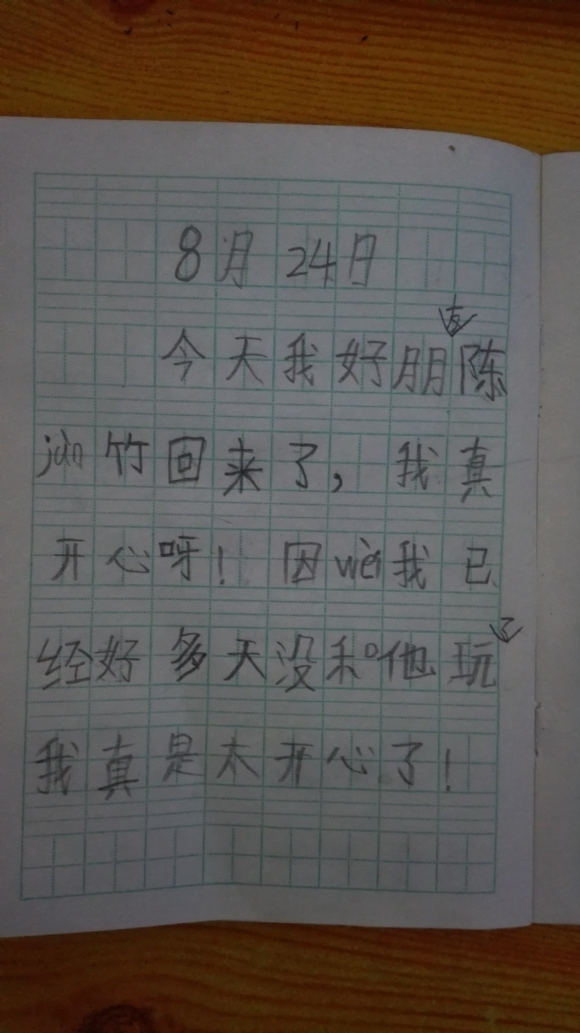 8月24日
今天我好朋友陈
jùn竹回来了，我真
开心呀！因wèi我已
经好多天没和他玩了
我真是太开心了！